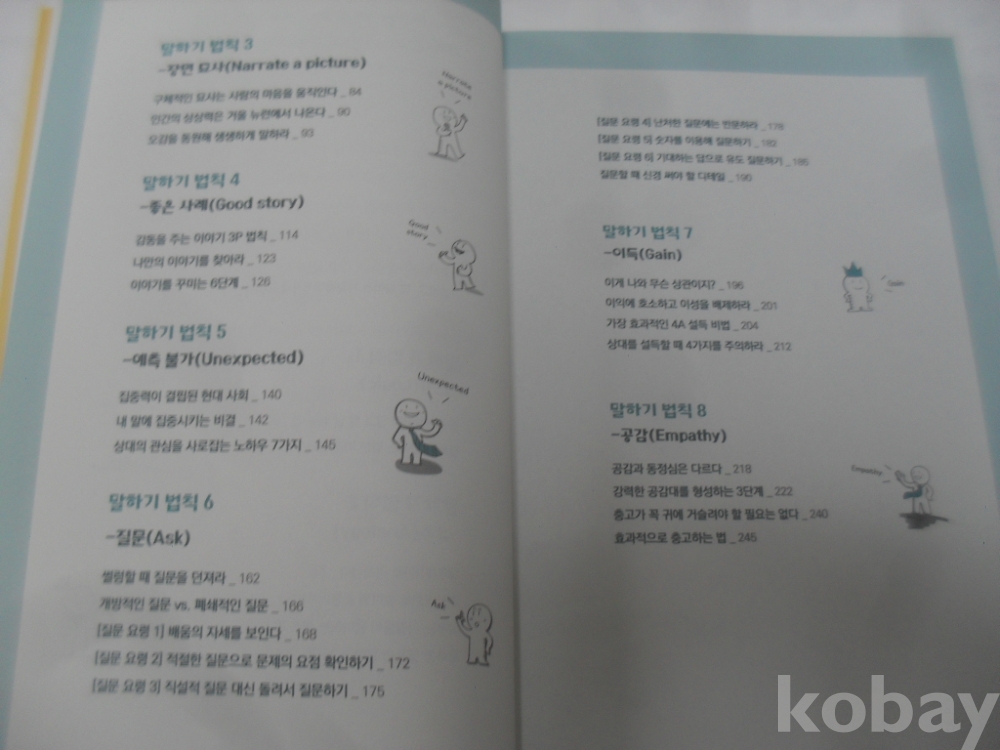 말하기 법칙 3
-장면 묘사(Narrate a picture)
구체적인 묘사는 사람의 마음을 움직인다 _ 84
인간의 상상력은 거울 뉴런에서 나온다 _ 90
오감을 동원해 생생하게 말하라 _ 93
Narrate
a picture
말하기 법칙 4
-좋은 사례(Good story)
감동을 주는 이야기 3P 법칙 _ 114
나만의 이야기를 찾아라 _ 123
이야기를 꾸미는 6단계 _ 126
Good
story
말하기 법칙 5
-예측 불가(Unexpected)
집중력이 결핍된 현대 사회 _ 140
내 말에 집중시키는 비결 _ 142
상대의 관심을 사로잡는 노하우 7가지 _ 145
Unexpected
말하기 법칙 6
-질문(Ask)
셀링할 때 질문을 던져라 _ 162
개방적인 질문 vs. 폐쇄적인 질문 _ 166
[질문 요령 1] 배움의 자세를 보인다 _ 168
[질문 요령 2] 적절한 질문으로 문제의 요점 확인하기 _ 172
[질문 요령 3] 직설적 질문 대신 돌려서 질문하기 _ 175
Ask
[질문 요령 4] 난처한 질문에는 반문하라 _ 178
[질문 요령 5] 숫자를 이용해 질문하기 _ 182
[질문 요령 6] 기대하는 답으로 유도 질문하기 _ 185
질문할 때 신경 써야 할 디테일 _ 190
말하기 법칙 7
-이득(Gain)
이게 나와 무슨 상관이지? _ 196
이익에 호소하고 이성을 배제하라 _ 201
가장 효과적인 4A 설득 비법 _ 204
상대를 설득할 때 4가지를 주의하라 _ 212
Gain
말하기 법칙 8
-공감(Empathy)
공감과 동정심은 다르다 _ 218
강력한 공감대를 형성하는 3단계 _ 222
충고가 꼭 귀에 거슬려야 할 필요는 없다 _ 240
효과적으로 충고하는 법 _ 245
Empathy
kobay